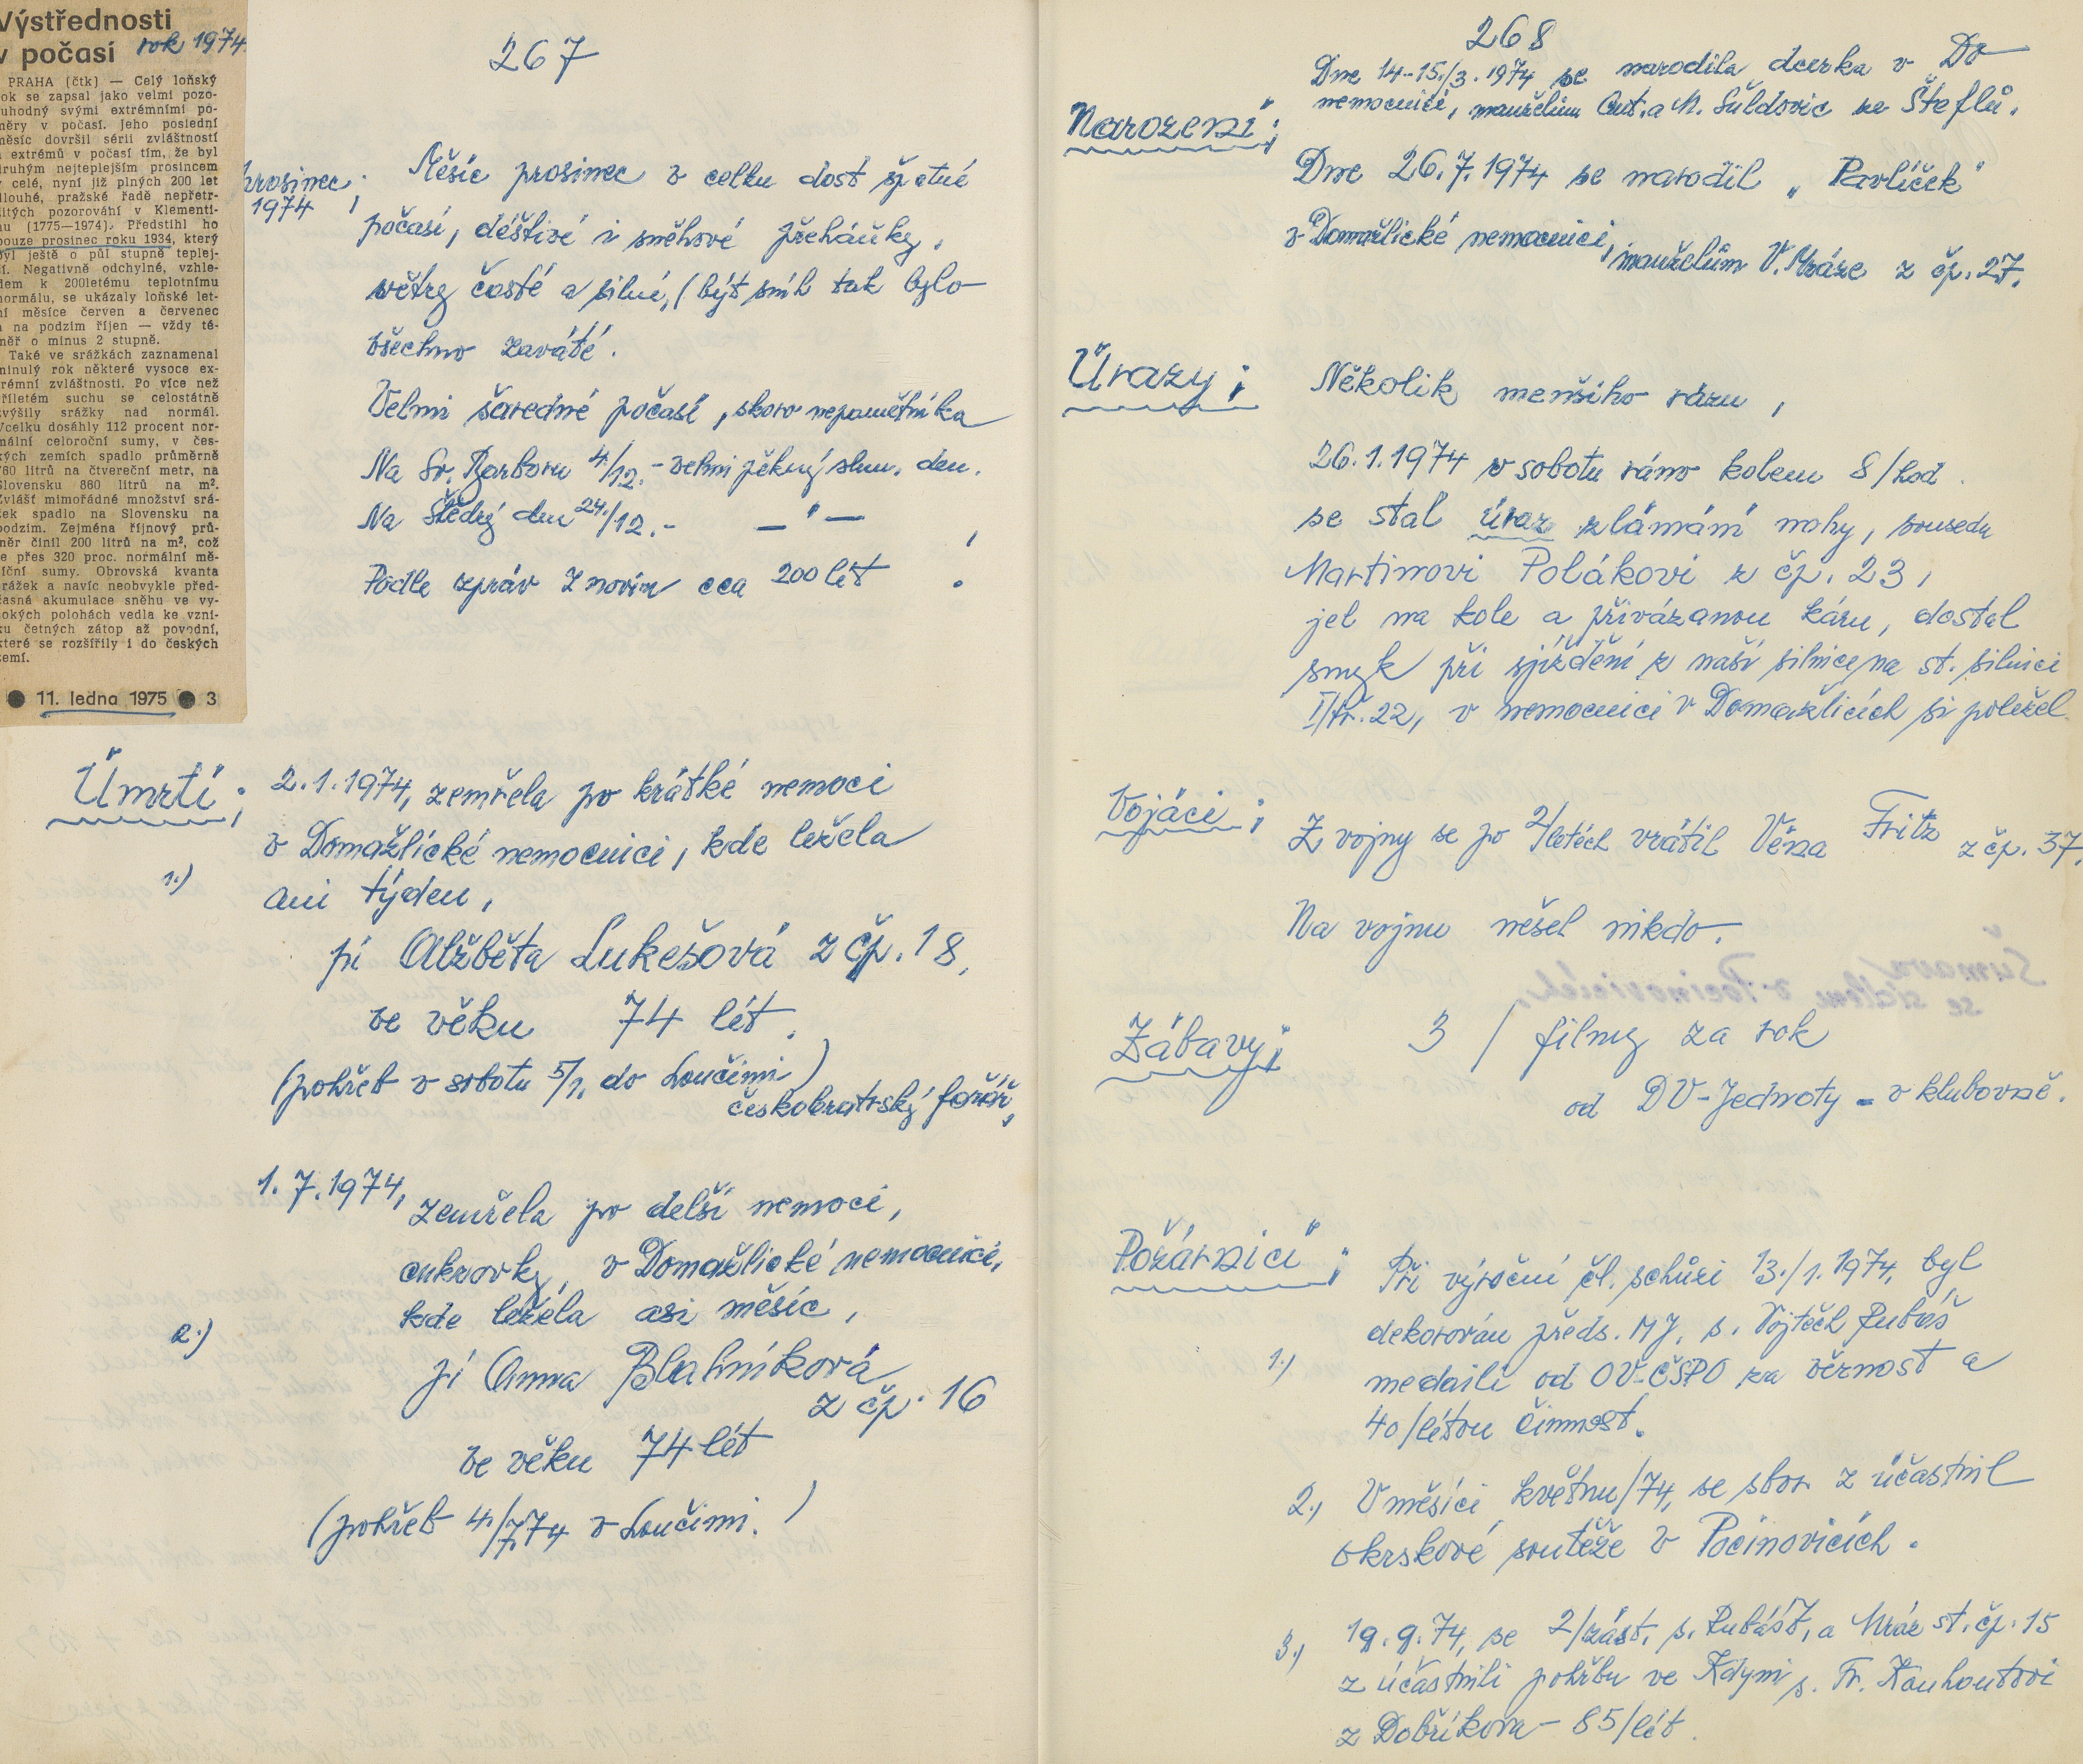 Výstřednosti
v počasí rok 1974
PRAHA (čtk) — Celý loňský
ok se zapsal jako velmi pozo-
uhodný svými extrémními po-
měry v počasí. Jeho poslední
měsíc dovršil sérii zvláštností
a extrémů v počasí tím, že byl
druhým nejteplejším prosincem
v celé, nyní již plných 200 let
dlouhé, pražské řadě nepřetr-
žitých pozorováhí v Klementi-
nu (1775—1974). Předstihl ho
pouze prosinec roku 1934, který
byl ještě o půl stupně teplej-
í. Negativně odchylné, vzhle-
dem k 200letému teplotnímu
normálu, se ukázaly loňské let-
ní měsíce červen a červenec
a na podzim říjen — vždy té-
měř o minus 2 stupně.
Také ve srážkách zaznamenal
minulý rok některé vysoce ex-
trémní zvláštnosti. Po více než
tříletém suchu se celostátně
zvýšily srážky nad normál.
Vcelku dosáhly 112 procent nor-
mální celoroční sumy, v čes-
kých zemích spadlo průměrně
760 litrů na čtvereční metr, na
Slovensku 860 litrů na m².
Zvlášť mimořádné množství srá-
žek spadlo na Slovensku na
podzim. Zejména říjnový prů-
měr činil 200 litrů na m², což
je přes 320 proc. normální mě-
síční sumy. Obrovská kvanta
srážek a navíc neobvykle před-
časná akumulace sněhu ve vy-
sokých polohách vedla ke vzni-
ku četných zátop až povodní,
které se rozšířily i do českých
zemí.
● 11. ledna 1975 ● 3
267
prosinec;
1974
Měsíc prosinec v celku dost špatné
počasí, déštivé i sněhové přeháňky,
větry časté a silné, (být sníh tak bylo
všechno zaváté.
Velmi šaredné počasí, skoro nepamětníka
Na Sv. Barboru 4/12.- velmi pěkný slun. den.
Na Štědrý den 24./12.- — " —
Podle zpráv z novin cca 200 lét !
Úmrtí;
1.)
2.1.1974, zemřela po krátké nemoci
v Domažlické nemocnici, kde ležela
ani týden,
pí Alžběta Lukešová z čp. 18,
ve věku 74 lét.
(pohřeb v sobotu 5/1, do Loučimi)
českobratrský farář,
2.)
1.7.1974,
zemřela po delší nemoci,
cukrovky, v Domažlické nemocnici,
kde ležela asi měsíc,
pí Anna Blahníková
z čp. 16
ve věku 74 lét
(pohřeb 4/7.74 v Loučimi.)
268
Narození;
Dne 14-15./3. 1974 se narodila dcerka v Do
nemocnici, manželům Ant. a M. Šuldovic ze Šteflů.
Dne 26.7.1974 se narodil „Pavlíček"
v Domažlické nemocnici, manželům V. Mráze z čp. 27.
Úrazy;
Několik menšího rázu,
26.1.1974 v sobotu ráno kolem 8/hod.
se stal úraz zlámání nohy, sousedu
Martinovi Polákovi z čp. 23,
jel na kole a přivázanou káru, dostal
smyk při sjíždění z naší silnice, na st. silnici
I/tř. 22, v nemocnici v Domažlicích si poležel.
Vojáci;
Z vojny se po 2/letéch vrátil Véna Fritz z čp. 37.
Na vojnu nešel nikdo.
Zábavy;
3 / filmy za rok
od DV-Jednoty - v klubovně.
Požárníci;
1.)
Při výroční čl. schůzi 13./1. 1974, byl
dekorován předs. MJ. s. Vojtěch Rubáš
medailí od OV-ČSPO za věrnost a
40/létou činnost.
2.) V měsíci květnu/74, se sbor z účastnil
okrskové soutěže v Pocinovicích.
3.) 19.9.74, se 2/zást. s. Rubášt, a Mráz st. čp. 15
z účastnili pohřbu ve Kdyni s. Fr. Kouhoutovi
z Dobříkova - 85/lét.